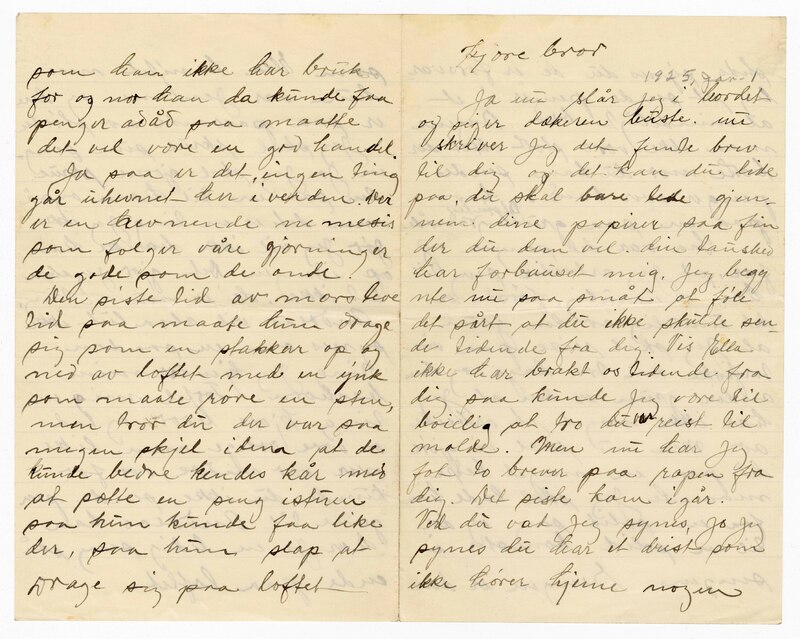 som han ikke har bruk
for og nor han da kunde faa
penger adåd saa maatte
det vel være en god handel
Ja saa er det, ingen ting
går uhevnet her i verden. Der
er en hevnende nemesis
som følger våre gjørninger
de gode som de onde.
Den siste tid av mors leve
tid saa maate hun drage
sig som en stakkar op og
ned av loftet med en ynk
som maate røre en sten,
men tror du der var saa
megen skjel i dena at de
kunde bedre hendes kår med
at sætte en seng i stuen
saa hun kunde faa like
der, saa hun slap at
drage sig paa loftet
Kjære bror
1925, Jan. 1
Ja nu slår jeg i bordet
og siger dækeren huste. nu
skriver Jeg det femte brev
til dig og det kan du lide
paa, du skal bare lede gjen-
nem dine papirer saa fin
der du dem vel. din taushed
har forbauset mig. Jeg begy
nte nu saa småt at føle
det sårt at du ikke skulde sen-
de tidende fra dig. Vis Ella
ikke har brakt os tidende fra
dig saa kunde Jeg være til
bøielig at tro du var reist til
molde. Men nu har Jeg
fåt to brever paa rapen fra
dig. Det siste kom igår.
Ved du vad Jeg synes, Jo Jeg
synes du har et drist som
ikke hører hjeme nogen